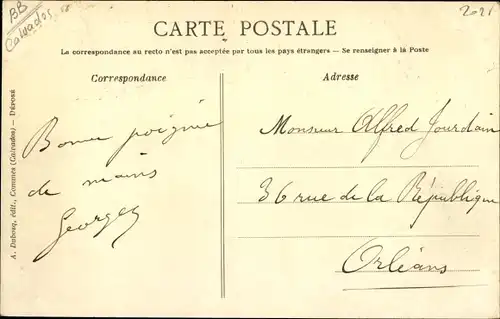 BB
Calvados
2021
CARTE POSTALE
La correspondance au recto n'est pas acceptée par tous les pays étrangers — Se renseigner à la Poste
Correspondance
Adresse
Bonne poignée
de mains
Georges
Monsieur Alfred Jourdain
36 rue de la République
Orléans
A. Dubosq, édit., Commes (Calvados) — Déposé